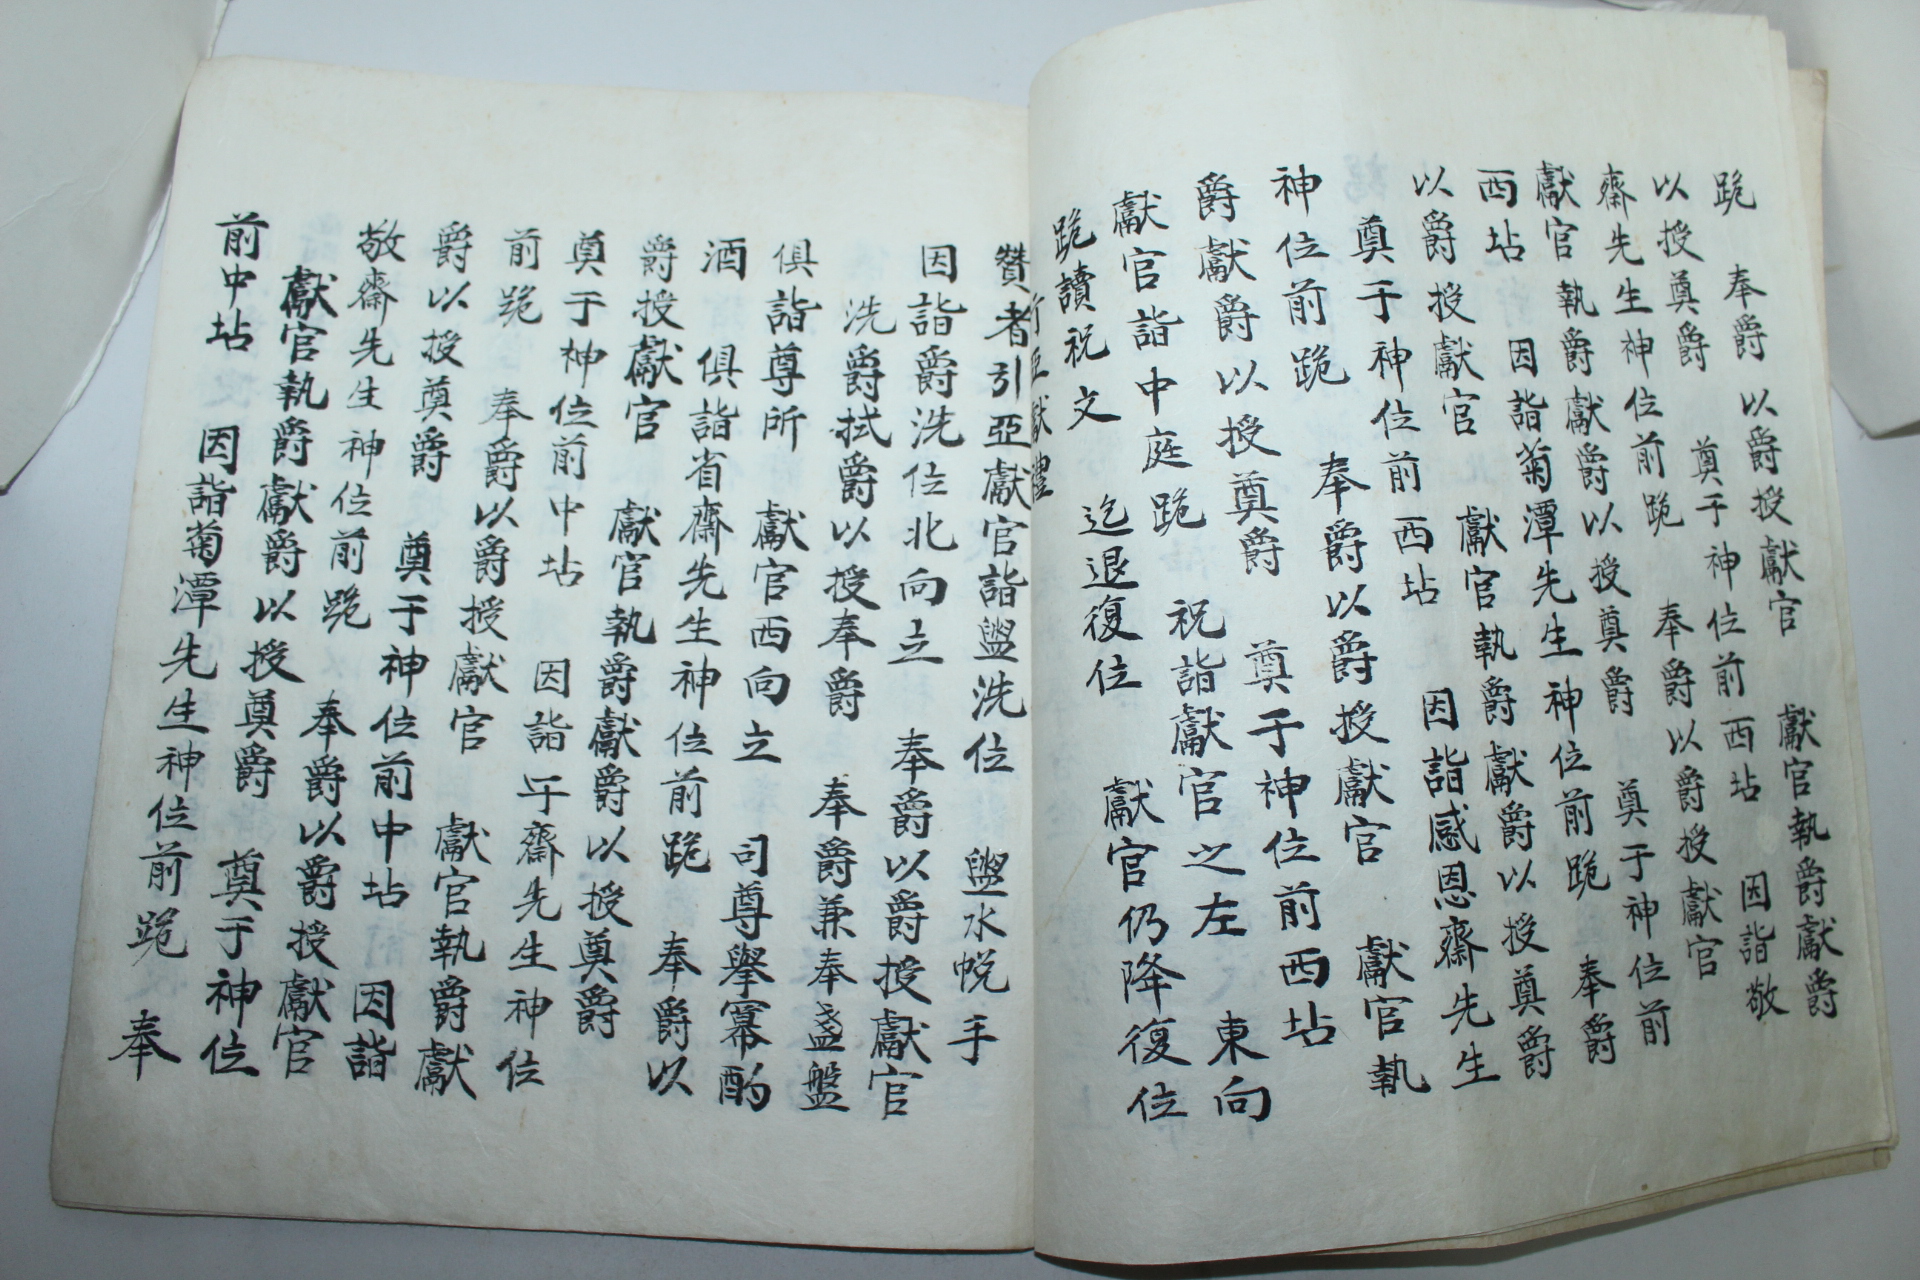 跪 奉爵以爵授獻官 獻官執爵獻爵
以授奠爵 奠于神位前西坫 因詣敬
齋先生神位前跪 奉爵以爵授獻官
獻官執爵獻爵以授奠爵 奠于神位前
西坫 因詣菊潭先生神位前跪 奉爵
以爵授獻官 獻官執爵獻爵以授奠爵
奠于神位前西坫 因詣感恩齋先生
神位前跪 奉爵以爵授獻官 獻官執
爵獻爵以授奠爵 奠于神位前西坫
獻官詣中庭跪 祝詣獻官之左 東向
跪讀祝文 迄退復位 獻官仍降復位
行亞獻禮
贊者引亞獻官詣盥洗位 盥水帨手
因詣爵洗位北向立 奉爵以爵授獻官
洗爵拭爵以授奉爵 奉爵兼奉盞盤
俱詣尊所 獻官西向立 司尊擧冪酌
酒 俱詣省齋先生神位前跪 奉爵以
爵授獻官 獻官執爵獻爵以授奠爵
奠于神位前中坫 因詣乓齋先生神位
前跪 奉爵以爵授獻官 獻官執爵獻
爵以授奠爵 奠于神位前中坫 因詣
敬齋先生神位前跪 奉爵以爵授獻官
獻官執爵獻爵以授奠爵 奠于神位
前中坫 因詣菊潭先生神位前跪 奉